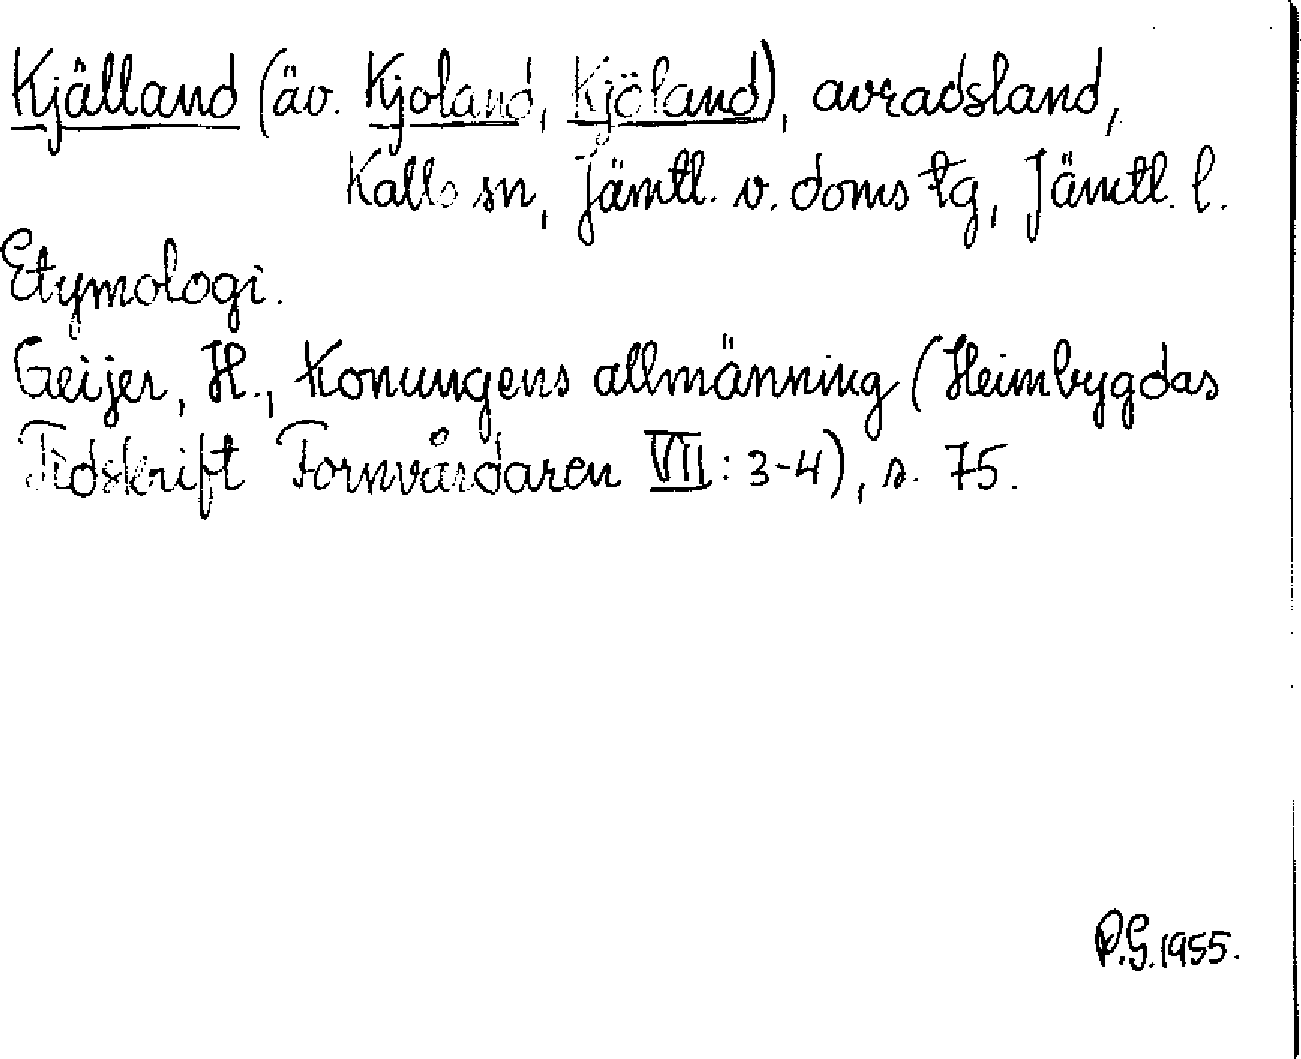 Kjâlland (äv. Kjoland, Kjöland), avradsland,
Kalls sn, Jämtl. v. doms tg, Jämtl. l.
Etymologi.
Geijer, H., Konungens allmänning (Heimbygdas
Tidskrift Fornvårdaren VII: 3-4), s. 75.
P.G. 1955.